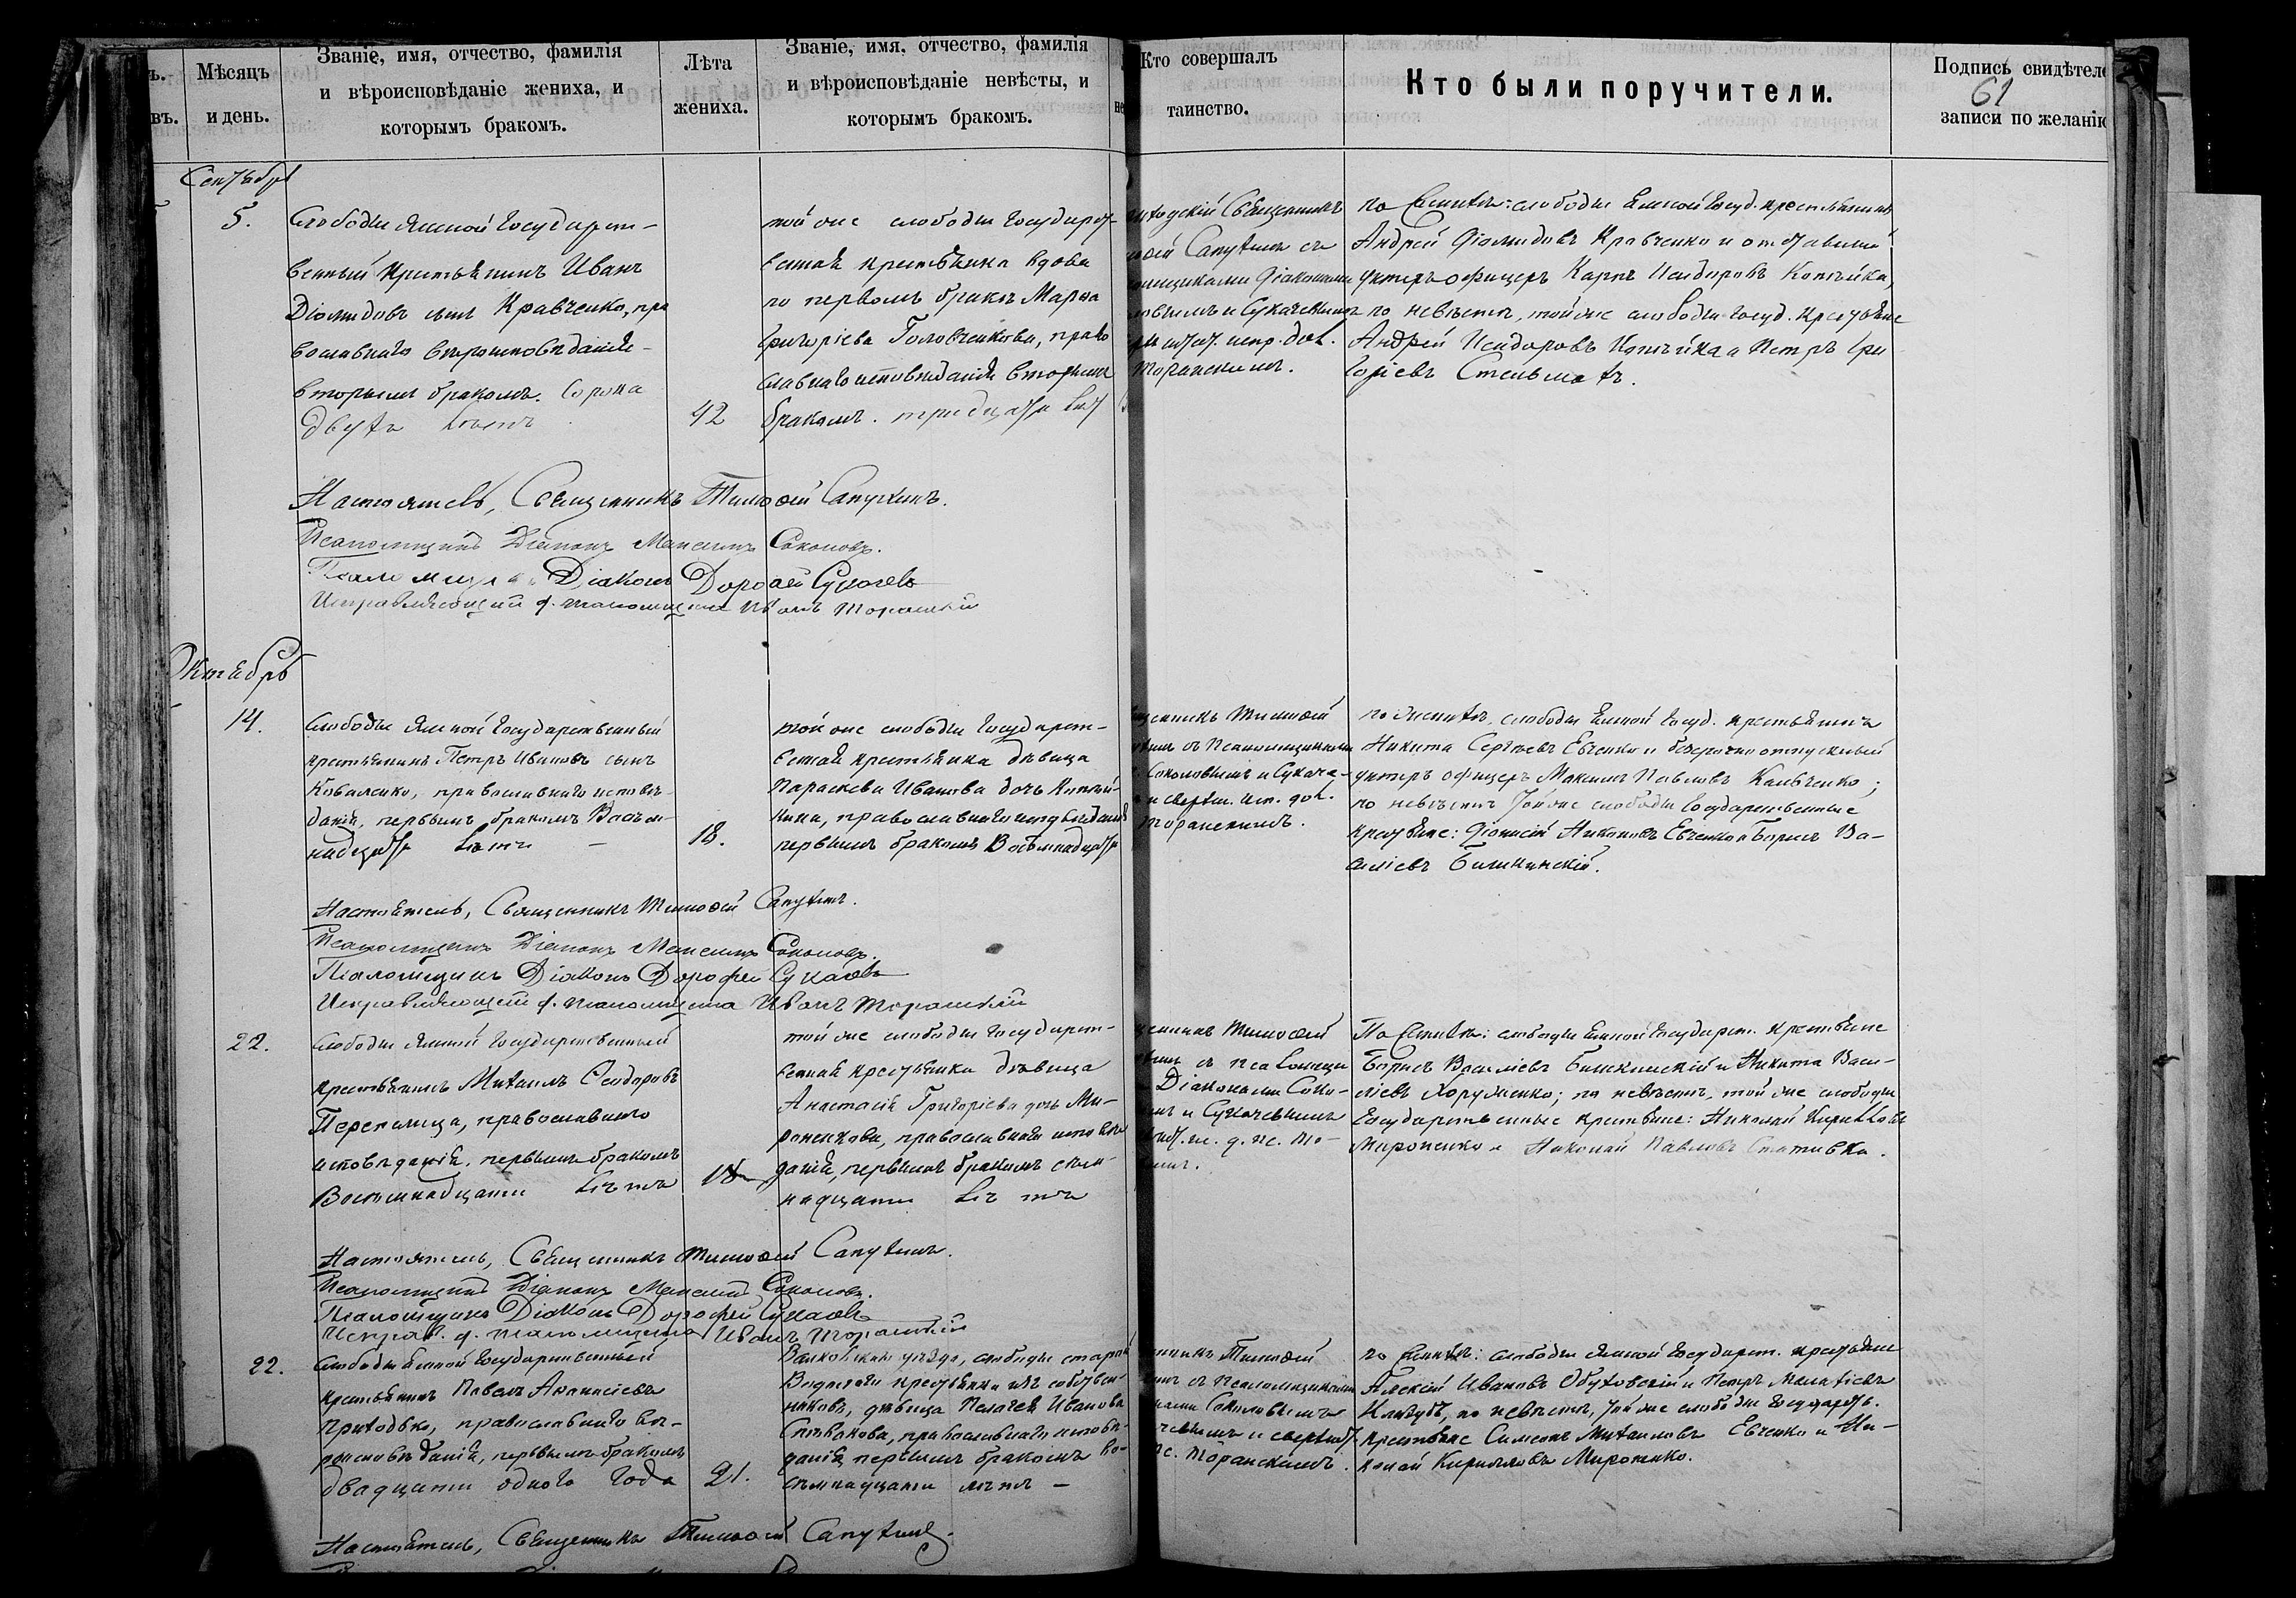 Мѣсяцъ
и день.
Званіе, имя, отчество, фамилія
и вѣроисповѣданіе жениха, и
которымъ бракомъ.
Лѣта
жениха.
Званіе, имя, отчество, фамилія
и вѣроисповѣданіе невѣсты, и
которымъ бракомъ.
Кто совершалъ
таинство.
Кто были поручители.
Подпись свидѣтеле
записи по желанію
61
Сентябрь
5.
Слободы Ямной Государст-
венный крестьянинъ Иванъ
Діомидовъ сынъ Кравченко, пра
вославнаго вѣроисповѣданія
вторымъ бракомъ. Сорока
двухъ лѣтъ
42
той же слободы Государст-
венная крестьянка вдова
по первомъ бракѣ Марѳа
Григоріева Головченкова, право
славнаго исповѣданія вторымъ
бракомъ. тридцати
Священникъ
Сапухинъ съ
Діаконами
и Сукачевымъ
Торанскимъ.
по женихѣ: слободы Ямной Госуд. крестьянинъ
Андрей Діомидовъ Кравченко и отставной
унтеръ офицеръ Карпъ Исидоровъ Копѣйка,
по невѣстѣ, той же слободы Госуд. крестьяне
Андрей Исидоровъ Копѣйка и Петръ Гри
горіевъ Стельмахъ.
Настоятель, Священникъ Тимоѳей Сапухинъ.
Псаломщикъ Діаконъ Максимъ Соколовъ.
Псаломщикъ Діаконъ Дороѳей Сукачевъ
Исправляющій д. псаломщика Иванъ Торанскій
Октябрь
14.
Слободы Ямной Государственный
крестьянинъ Петръ Ивановъ сынъ
Коваленко, православнаго исповѣ-
данія, первымъ бракомъ Восем-
надцати лѣтъ –
18.
той же слободы Государст-
венная крестьянка дѣвица
Параскева Иванова дочь Копѣй-
кина, православнаго исповѣданія
первымъ бракомъ Восемнадцати
Тимоѳей
съ Псаломщиками
Соколовымъ и Сукаче-
Торанскимъ.
по женихѣ, слободы Ямной Госуд. крестьянинъ
Никита Сергѣевъ Евченко и безсрочно отпускной
унтеръ офицеръ Максимъ Павловъ Кальченко;
по невѣстѣ той же слободы Государственные
крестьяне: Діонисій Никоновъ Евченко и Борисъ Ва-
силіевъ Бишкинскій.
Настоятель, Священникъ Тимоѳей Сапухинъ.
Псаломщикъ Діаконъ Максимъ Соколовъ.
Псаломщикъ Діаконъ Дорофей Сукачевъ
Исправляющій д. псаломщика Иванъ Торанскій
22.
Слободы Ямной Государственный
крестьянинъ Михаилъ Сидоровъ
Перепелица, православнаго
исповѣданія, первымъ бракомъ
Восемнадцати лѣтъ
18
той же слободы Государст-
венная крестьянка дѣвица
Анастасія Григоріева дочь Ми-
ронenkova, православнаго исповѣ
данія, первымъ бракомъ
надцати лѣтъ
Тимоѳей
Діаконами Соко-
и Сукачевымъ
По женихѣ: слободы Ямной Государст. крестьяне
Борисъ Василіевъ Бишкинскій и Никита Васи-
ліевъ Хоруженко; по невѣстѣ, той же слободы
Государственные крестьяне: Николай Кирилловъ
Мироненко и Николай Павловъ Стативка.
Настоятель, Священникъ Тимоѳей Сапухинъ.
Псаломщикъ Діаконъ Максимъ Соколовъ.
Псаломщикъ Діаконъ Дорофей Сукачевъ
Исправ. д. псаломщика Иванъ Торанскій
22.
Слободы Ямной Государственный
крестьянинъ Павелъ Аѳанасіевъ
Приходько, православнаго вѣ-
роисповѣданія, первымъ бракомъ
двадцати одного года
21.
Валковскаго уѣзда, слободы старой
Водолаги крестьянка изъ собствен-
никовъ, дѣвица Пелагея Иванова
православнаго исповѣ-
данія, первымъ бракомъ во-
семнадцати лѣтъ –
Тимоѳей
съ Псаломщиками
Соколовымъ
Торанскимъ.
по женихѣ: слободы Ямной Государст. крестьяне
Алексій Ивановъ Обуховскій и Петръ
по невѣстѣ, той же слободы Государст.
крестьяне Симеонъ Михаиловъ Евченко и Ни-
колай Кирилловъ Мироненко.
Настоятель, Священникъ Тимоѳей Сапухинъ.